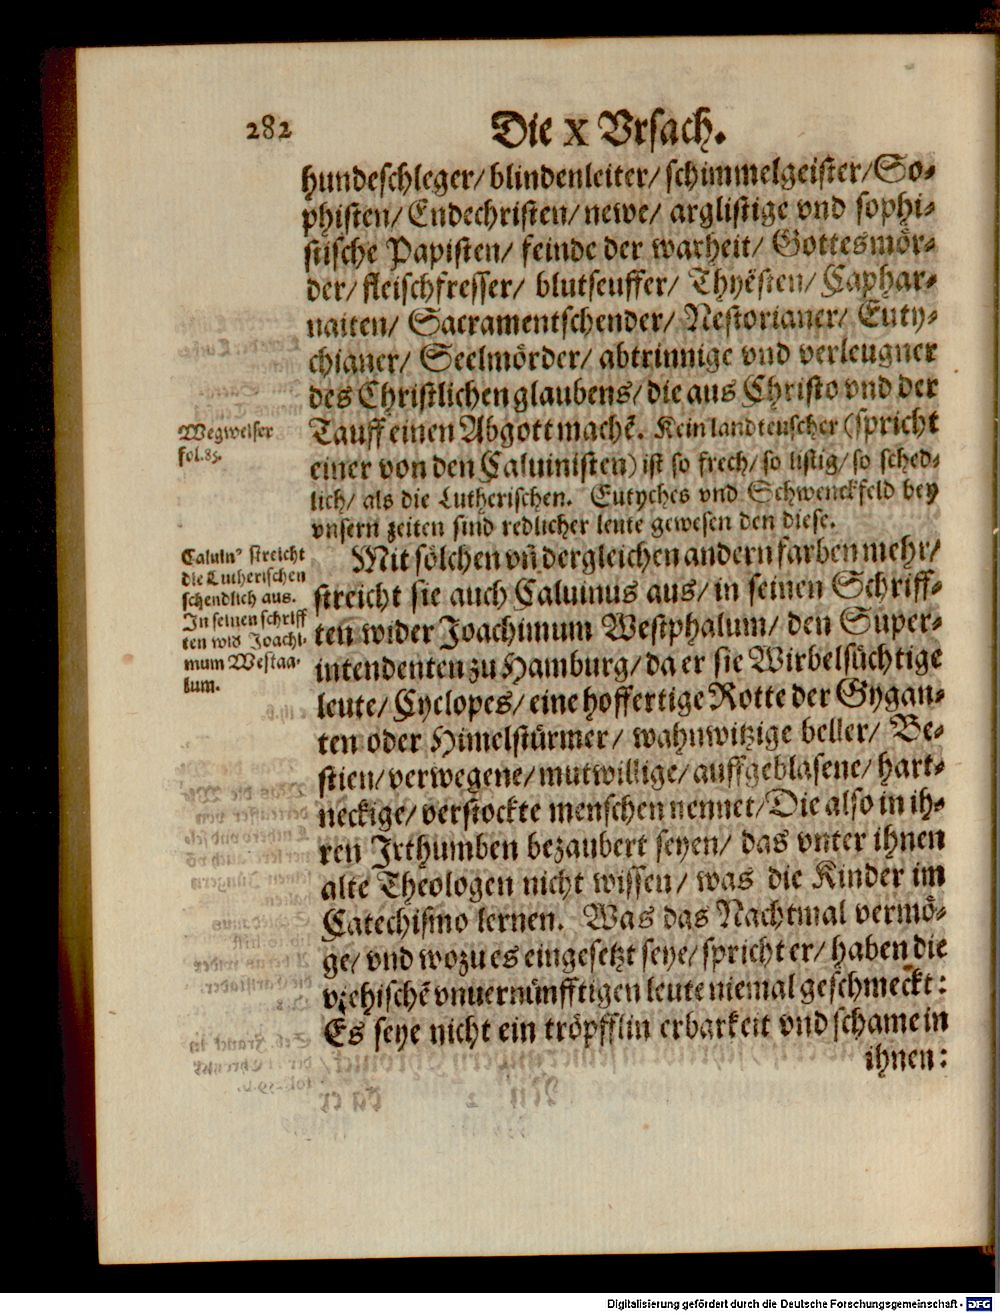 282
Die X Vrsach.
hundeschleger/ blindenleiter/ schimmelgeister/ So-
phisten/ Endechristen/ newe/ arglistige vnd sophi-
stische Papisten/ feinde der warheit/ Gottesmör-
der/ fleischfresser/ blutseuffer/ Thyësten/ Caphar-
naiten/ Sacramentschender/ Nestorianer/ Euty-
chianer/ Seelmörder/ abtrinnige vnd verleugner
des Christlichen glaubens/ die aus Christo vnd der
Tauff einen Abgott machē. Kein landteuscher (spricht
einer von den Caluinisten) ist so frech/ so listig/ so sched-
lich/ als die Lutherischen. Eutyches vnd Schwenckfeld bey
vnsern zeiten sind redlicher leute gewesen den diese.
Wegweiser
fol.85.
Mit sölchen vñ dergleichen andern farben mehr/
streicht sie auch Caluinus aus/ in seinen Schriff-
ten wider Joachimum Westphalum/ den Super-
intendenten zu Hamburg/ da er sie Wirbelsüchtige
leute/ Cyclopes/ eine hoffertige Rotte der Gygan-
ten oder Himelstürmer/ wahnwitzige beller/ Be-
stien/ verwegene/ mutwillige/ auffgeblasene/ hart-
neckige/ verstockte menschen nennet/ Die also in ih-
ren Irthumben bezaubert seyen/ das vnter ihnen
alte Theologen nicht wissen/ was die Kinder im
Catechismo lernen. Was das Nachtmal vermö-
ge/ vnd wozu es eingesetzt seye/ spricht er/ haben die
vꝛehischē vnuernünfftigen leute niemal geschmeckt:
Es seye nicht ein tröpfflin erbarkeit vnd schame in
ihnen:
Caluin⁹ streicht
die Lutherischen
schendlich aus.
In seinen schriff
ten wid Joachi-
mum Westaa-
lum.
Digitalisierung gefördert durch die Deutsche Forschungsgemeinschaft - DFG